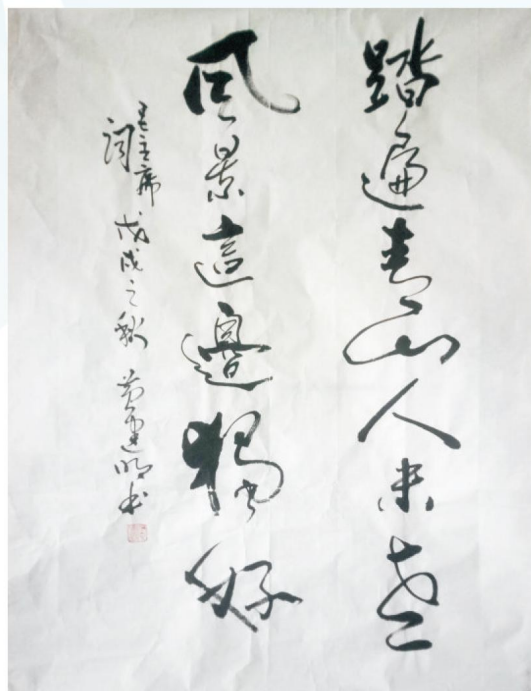 踏遍青山人未老
風景這邊獨好
毛主席詞 戊戌之秋 黄建明书